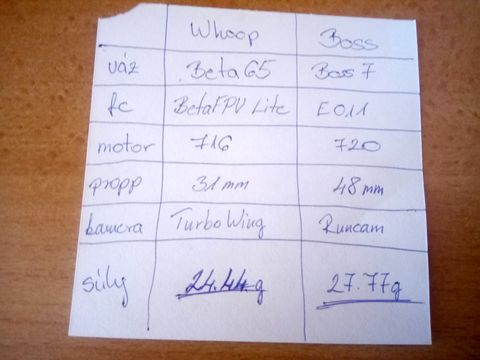 Whoop Boss
váz Beta65 Boss 7
fc BetaFPV Lite E011
motor 716 720
propp 31mm 48mm
kamera TurboWing Runcam
súly 24.44g 27.77g